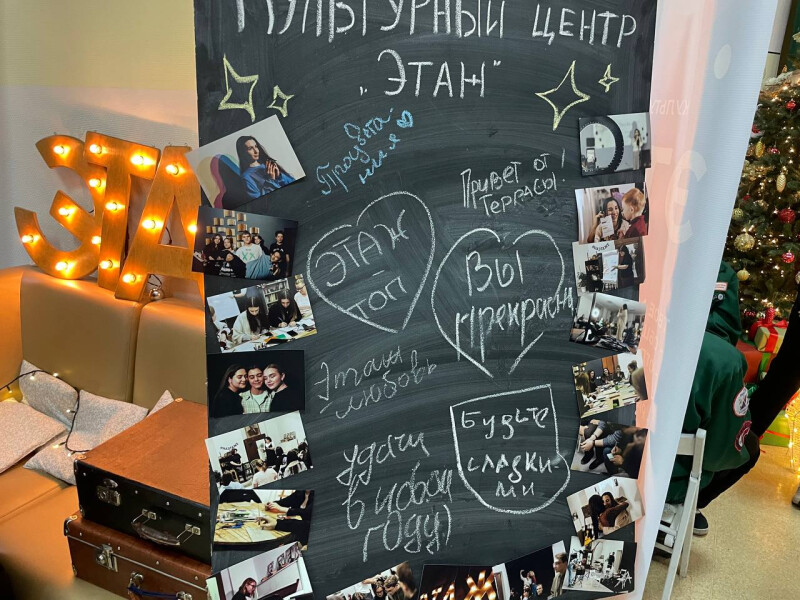 КУЛЬТУРНЫЙ ЦЕНТР
„ЭТАЖ"
Привет от
Террасы!
ЭТАЖ
ТОП
Вы
прекрасны
Этаж
любовь
Будьте
сладки-
ми
удачи
в новом
году)
ЭТА